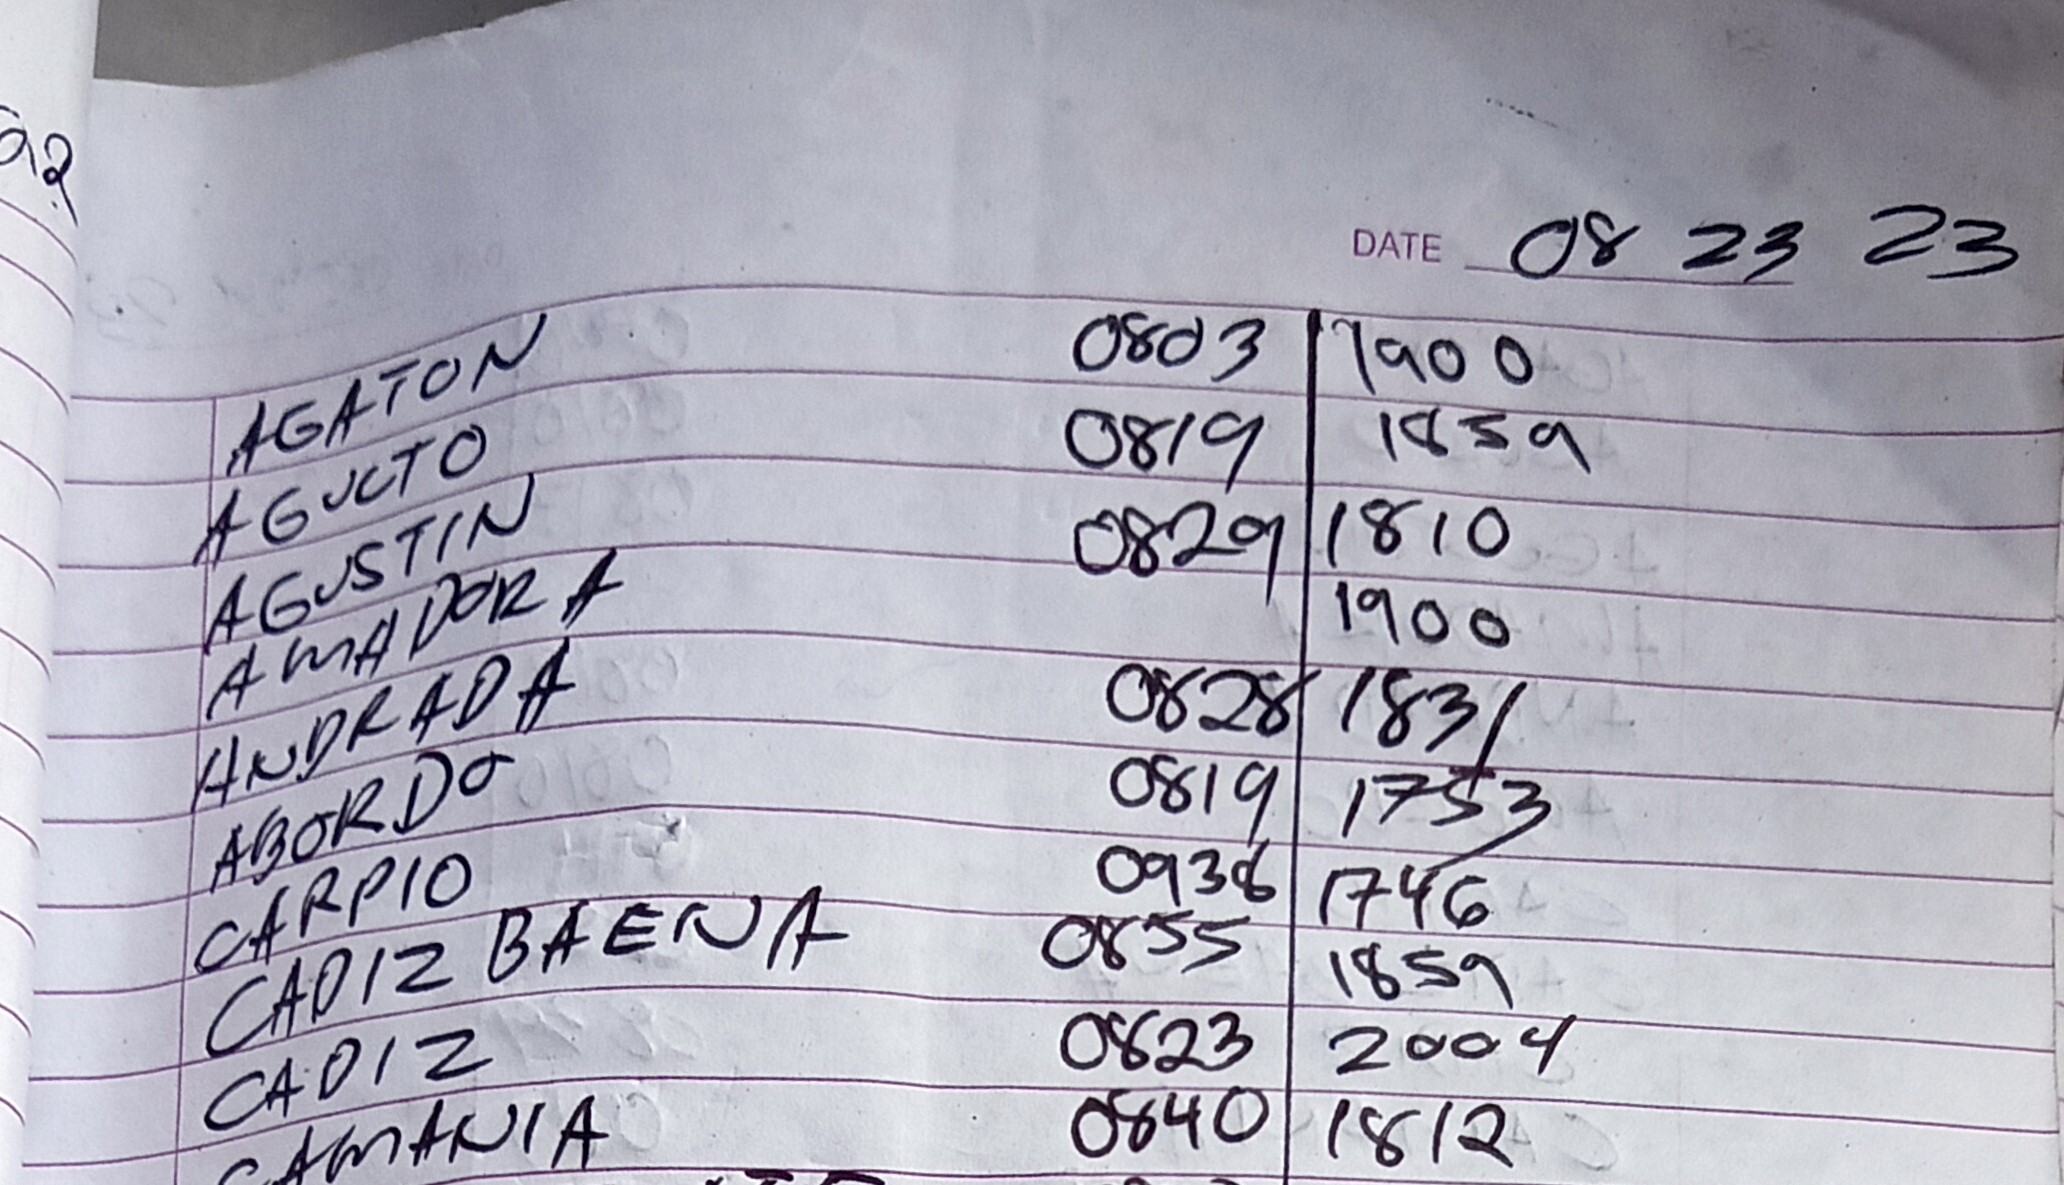 DATE 08 23 23
AGATON 0803 1900
AGUCTO 0819 1859
AGUSTIN 0829 1810
AMADORA 1900
ANDRADA 0828 1831
ABORDO 0819 1753
CARPIO 0936 1746
CADIZ BAENA 0855 1859
CADIZ 0823 2004
CAMANIA 0840 1812